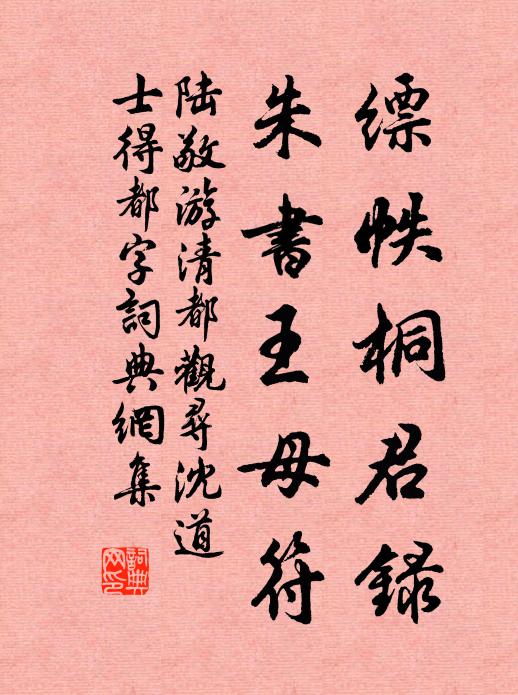 缥帙桐君録
朱書王母符
陆敬游清都觀尋沈道
士得都字詞典網集
詞典網印